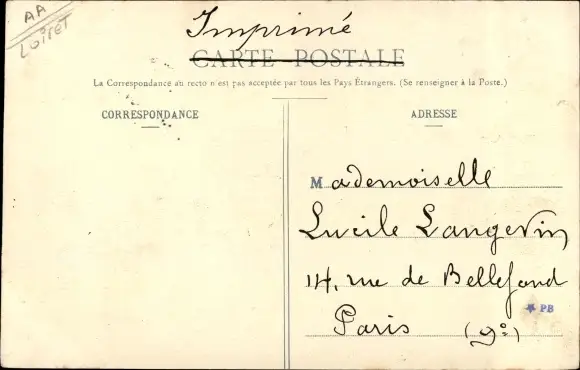 AA
Loiret
Imprimé
CARTE POSTALE
La Correspondance au recto n'est pas acceptée par tous les Pays Étrangers. (Se renseigner à la Poste.)
CORRESPONDANCE
ADRESSE
Mademoiselle
Lucile Langevin
14, rue de Bellefond
★ PB
Paris (9e)